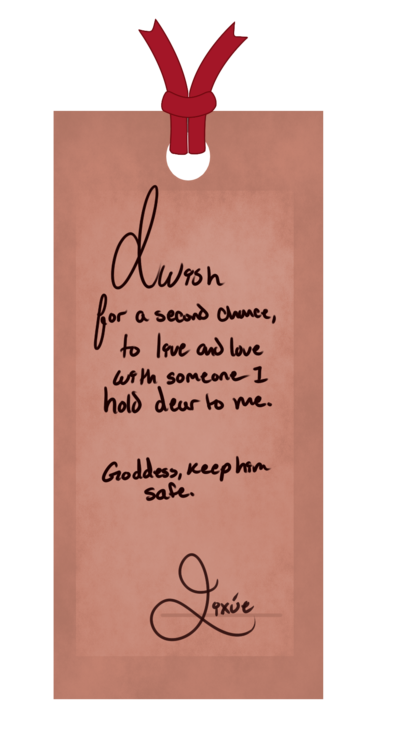 I wish
for a second chance,
to live and love
with someone I
hold dear to me.
Goddess, keep him
safe.
Lixúe